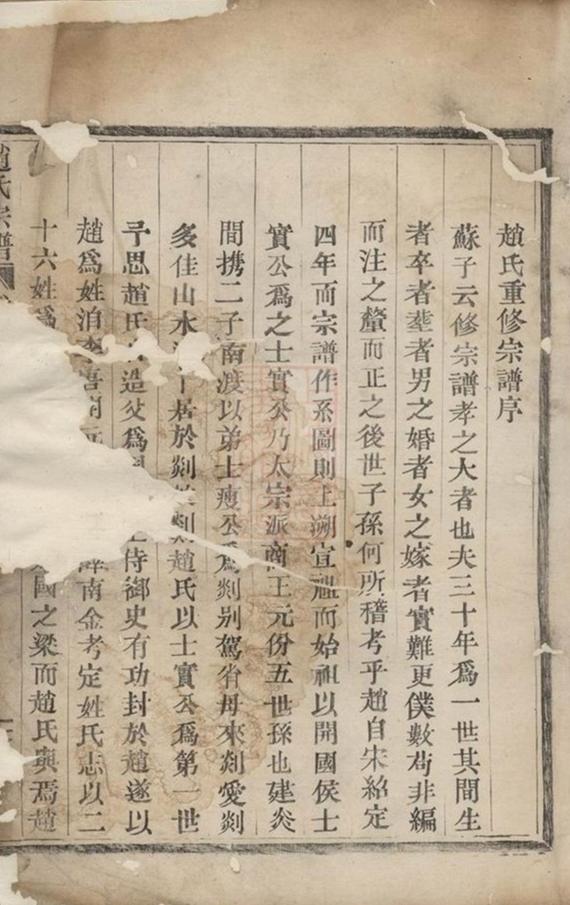 趙氏重修宗譜序
蘇子云修宗譜孝之大者也夫三十年爲一世其間生
者卒者塟者男之婚者女之嫁者實難更僕數苟非編
而注之釐而正之後世子孫何所稽考乎趙自宋紹定
四年而宗譜作系圖則上溯宣祖而始祖以開國侯士
實公爲之士實公乃太宗派商王元份五世孫也建炎
間携二子南渡以弟士㾞公爲剡别駕省母來剡愛剡
多佳山水居於剡剡趙氏以士實公爲第一世
予思趙氏造父爲侍御史有功封於趙遂以
趙爲姓洎南金考定姓氏志以二
十六姓爲國之梁而趙氏與焉趙
趙氏宗譜